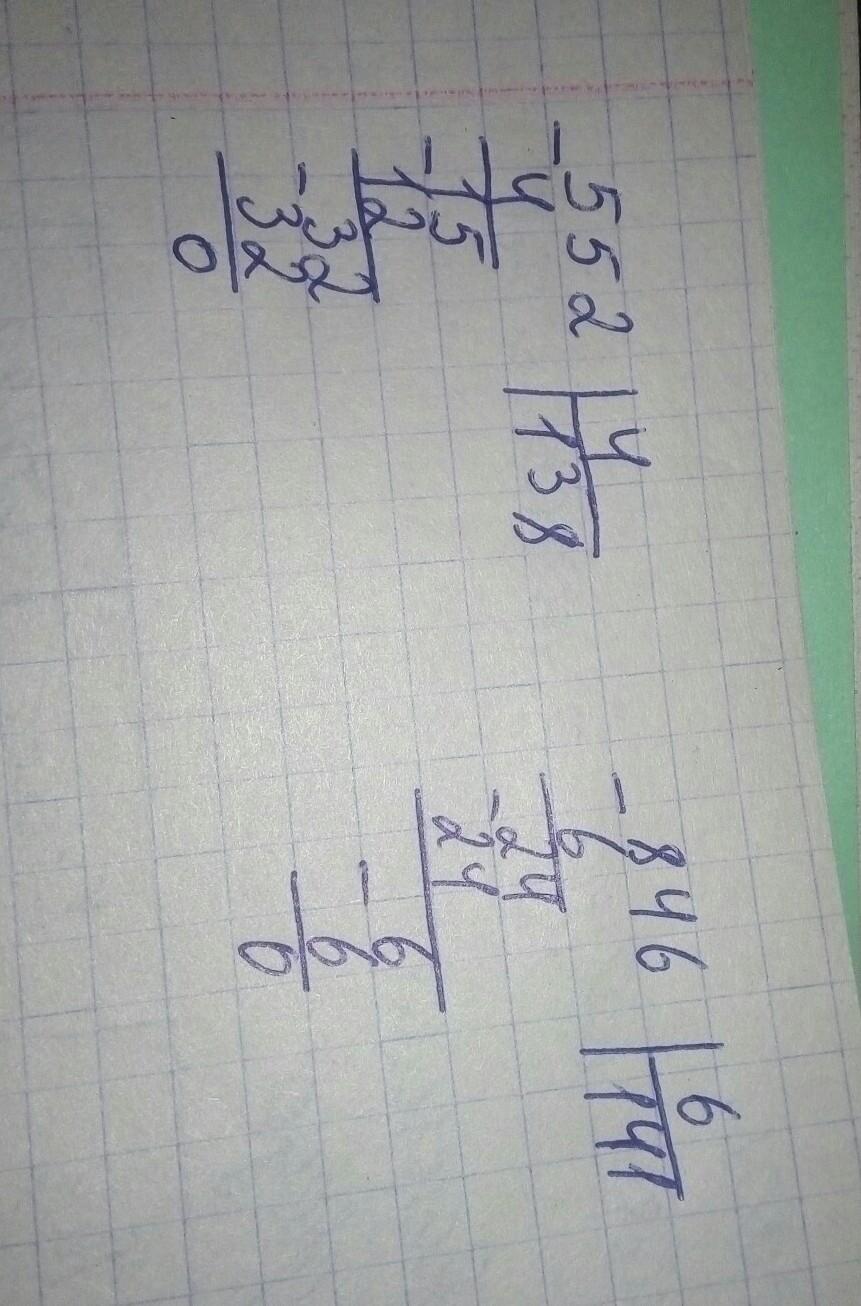 -552 | 4
4 | 138
-15
12
-32
32
0
-846 | 6
6 | 141
-24
24
-6
6
0